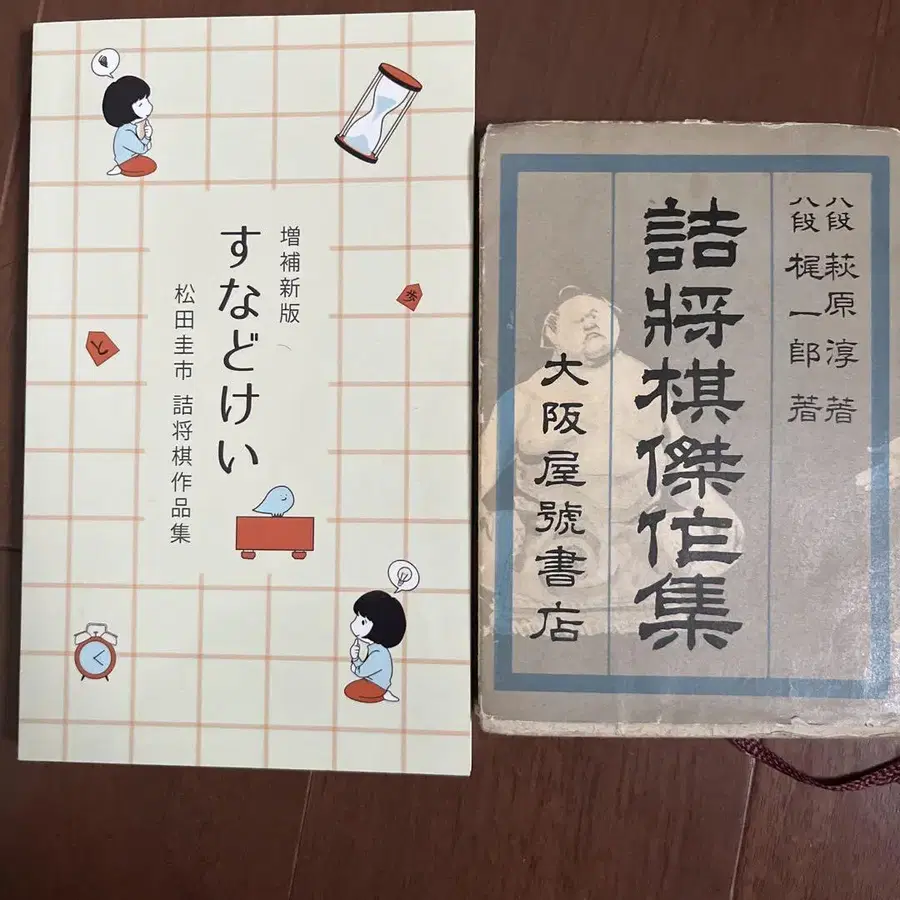 増補新版
すなどけい
松田圭市 詰将棋作品集
歩
と
八段 萩原淳著
八段 梶一郎著
詰將棋傑作集
大阪屋號書店